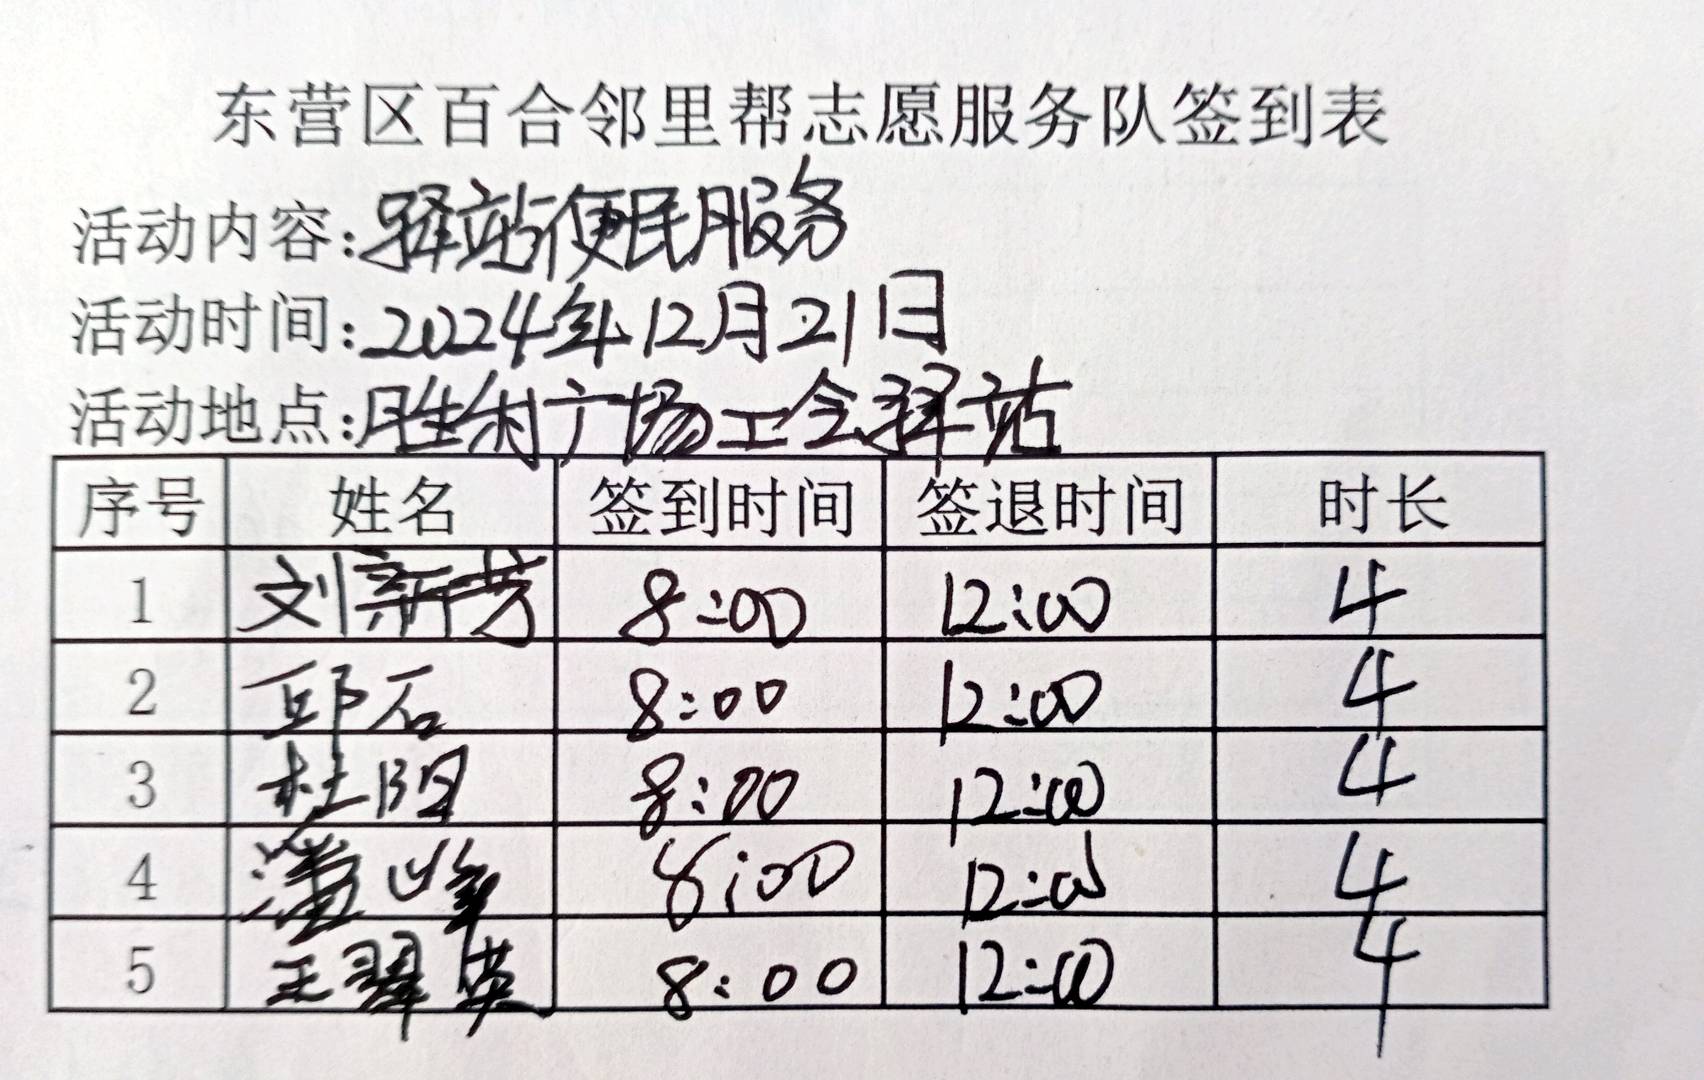 东营区百合邻里帮志愿服务队签到表
活动内容:驿站便民服务
活动时间:2024年12月21日
活动地点:胜利广场工会驿站
序号 姓名 签到时间 签退时间 时长
1 刘新芳 8:00 12:00 4
2 邱石 8:00 12:00 4
3 杜阳 8:00 12:00 4
4 潘峰 8:00 12:00 4
5 王翠英 8:00 12:00 4